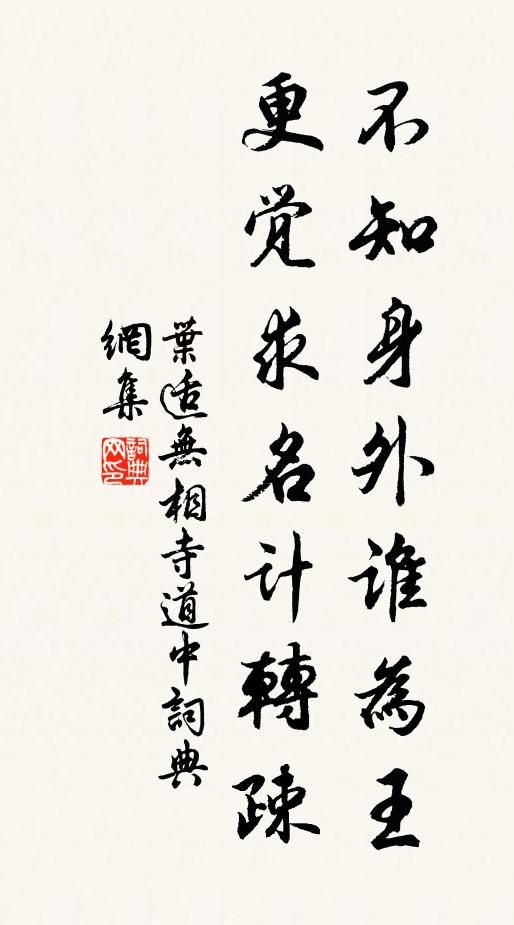 不知身外誰為王
更覚求名計轉疎
葉适無相寺道中詞典
網集
詞典网印